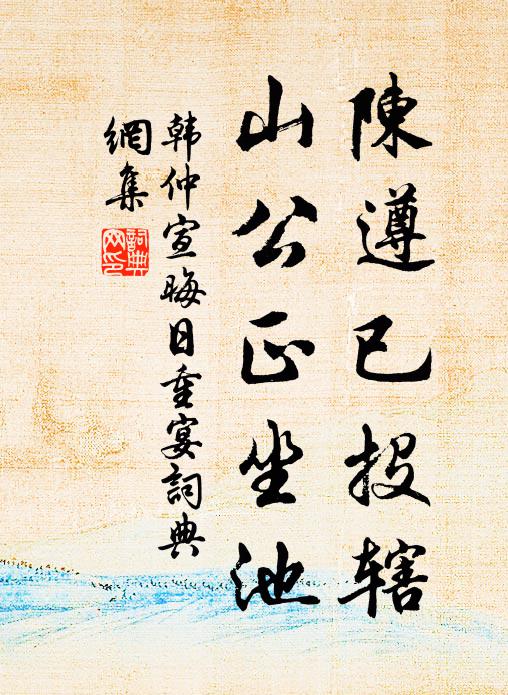 陳遵已投辖
山公正坐池
韩仲宣晦日重宴詞典
網集
詞典
网印